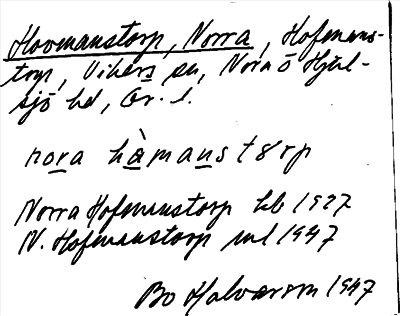 Hovmanstorp, Norra, Hofmans-
torp, Vikers sn, Nora o Hjul-
sjö hd, Ör. l.
nora hàmanstørp
Norra Hofmanstorp kb 1927
N. Hofmanstorp ml 1947
Bo Halvarson 1947